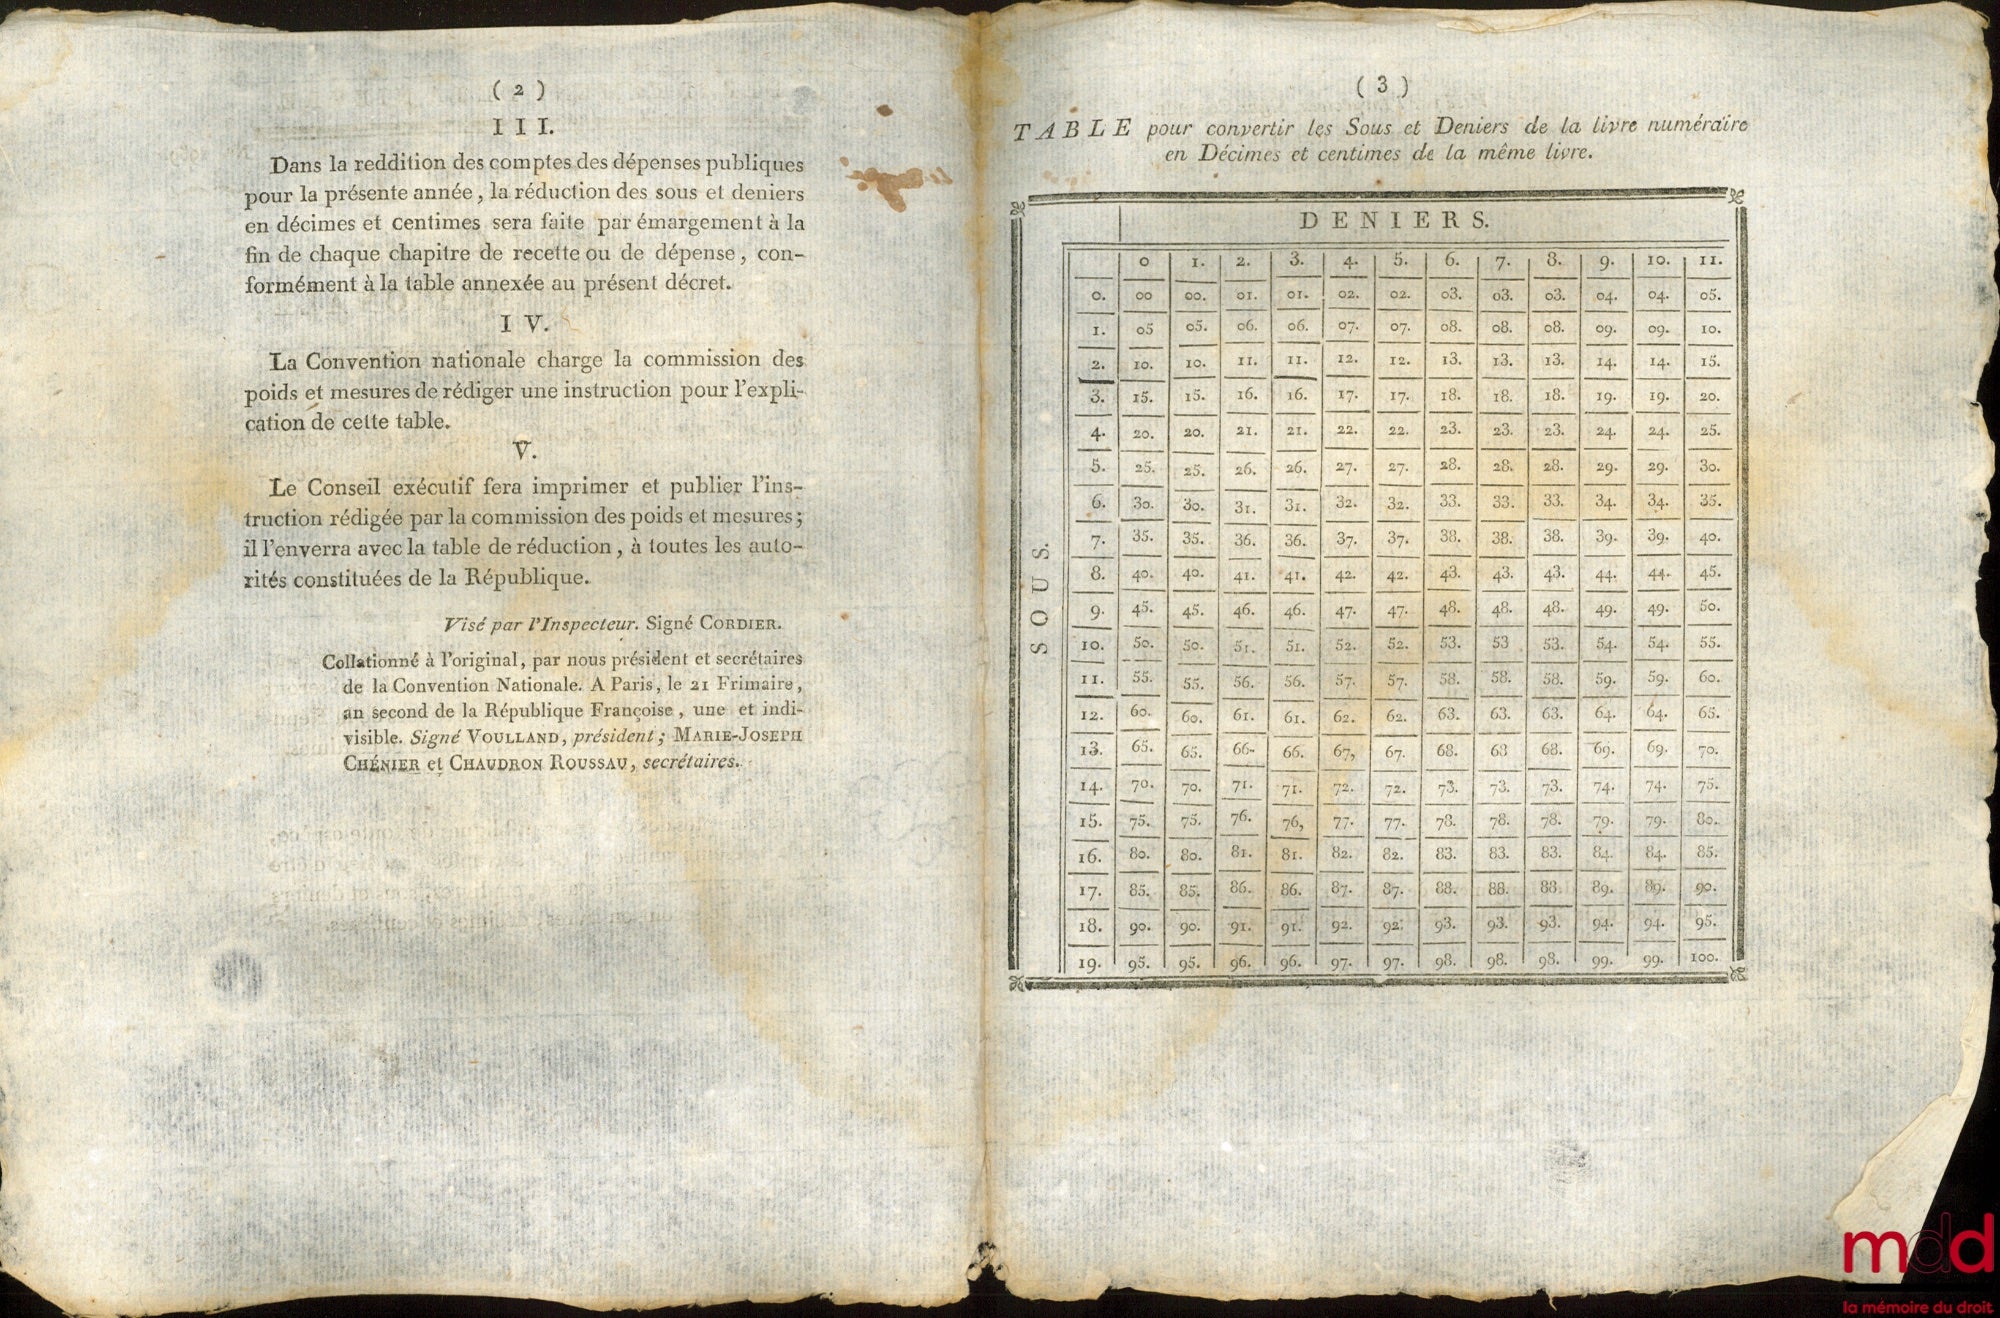 ( 2 )
III.
Dans la reddition des comptes des dépenses publiques
pour la présente année, la réduction des sous et deniers
en décimes et centimes sera faite par émargement à la
fin de chaque chapitre de recette ou de dépense, con-
formément à la table annexée au présent décret.
IV.
La Convention nationale charge la commission des
poids et mesures de rédiger une instruction pour l'expli-
cation de cette table.
V.
Le Conseil exécutif fera imprimer et publier l'ins-
truction rédigée par la commission des poids et mesures;
il l'enverra avec la table de réduction, à toutes les auto-
rités constituées de la République.
Visé par l'Inspecteur. Signé CORDIER.
Collationné à l'original, par nous président et secrétaires
de la Convention Nationale. A Paris, le 21 Frimaire,
an second de la République Françoise, une et indi-
visible. Signé VOULLAND, président; MARIE-JOSEPH
CHÉNIER et CHAUDRON ROUSSAU, secrétaires.
( 3 )
TABLE pour convertir les Sous et Deniers de la livre numéraire
en Décimes et centimes de la même livre.
DENIERS.
SOUS.
0 1. 2. 3. 4. 5. 6. 7. 8. 9. 10. 11.
0. 00 00. 01. 01. 02. 02. 03. 03. 03. 04. 04. 05.
1. 05 05. 06. 06. 07. 07. 08. 08. 08. 09. 09. 10.
2. 10. 10. 11. 11. 12. 12. 13. 13. 13. 14. 14. 15.
3. 15. 15. 16. 16. 17. 17. 18. 18. 18. 19. 19. 20.
4. 20. 20. 21. 21. 22. 22. 23. 23. 23. 24. 24. 25.
5. 25. 25. 26. 26. 27. 27. 28. 28. 28. 29. 29. 30.
6. 30. 30. 31. 31. 32. 32. 33. 33. 33. 34. 34. 35.
7. 35. 35. 36. 36. 37. 37. 38. 38. 38. 39. 39. 40.
8. 40. 40. 41. 41. 42. 42. 43. 43. 43. 44. 44. 45.
9. 45. 45. 46. 46. 47. 47. 48. 48. 48. 49. 49. 50.
10. 50. 50. 51. 51. 52. 52. 53. 53 53. 54. 54. 55.
11. 55. 55. 56. 56. 57. 57. 58. 58. 58. 59. 59. 60.
12. 60. 60. 61. 61. 62. 62. 63. 63. 63. 64. 64. 65.
13. 65. 65. 66. 66. 67, 67. 68. 68 68. 69. 69. 70.
14. 70. 70. 71. 71. 72. 72. 73. 73. 73. 74. 74. 75.
15. 75. 75. 76. 76, 77. 77. 78. 78. 78. 79. 79. 80.
16. 80. 80. 81. 81. 82. 82. 83. 83. 83. 84. 84. 85.
17. 85. 85. 86. 86. 87. 87. 88. 88. 88. 89. 89. 90.
18. 90. 90. 91. 91. 92. 92. 93. 93. 93. 94. 94. 95.
19. 95. 95. 96. 96. 97. 97. 98. 98. 98. 99. 99. 100.
mdd
la mémoire du droit